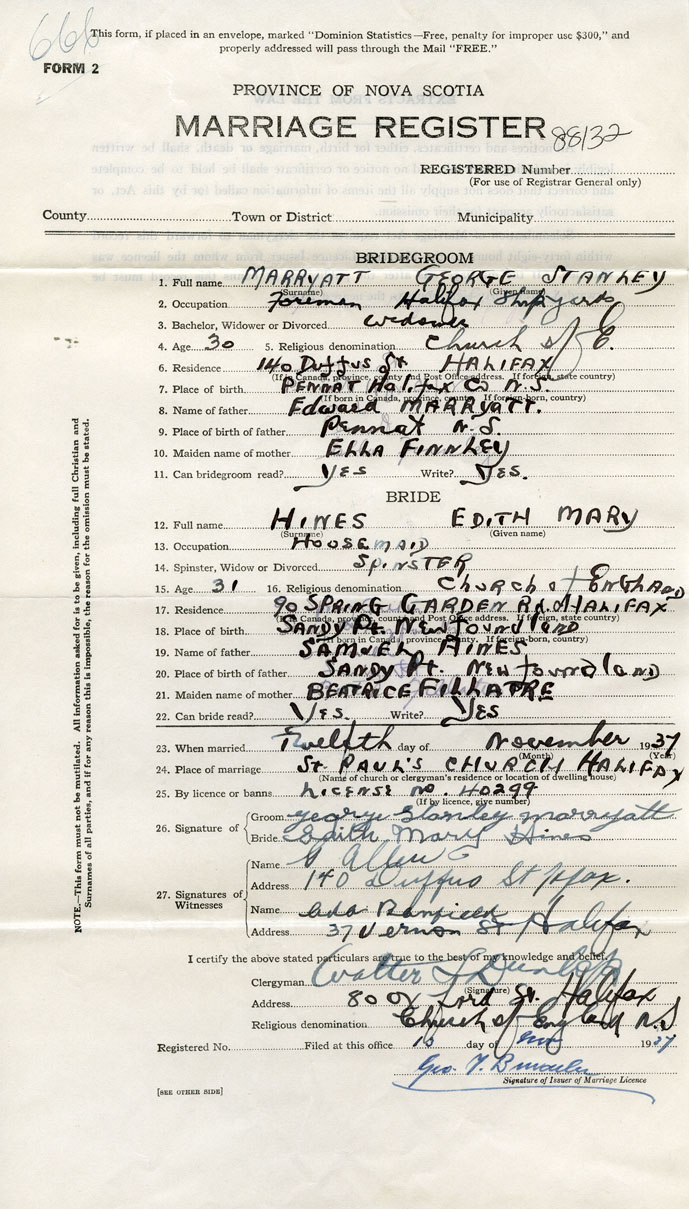 666
This form, if placed in an envelope, marked "Dominion Statistics—Free, penalty for improper use $300," and
properly addressed will pass through the Mail "FREE."
FORM 2
PROVINCE OF NOVA SCOTIA
MARRIAGE REGISTER 88132
REGISTERED Number
(For use of Registrar General only)
County Town or District Municipality
BRIDEGROOM
1. Full name MARRYATT GEORGE STANLEY
(Surname) (Given name)
2. Occupation Foreman Halifax Shipyards
3. Bachelor, Widower or Divorced widower
4. Age 30 5. Religious denomination Church of E.
6. Residence 140 Duffus St HALIFAX
(If in Canada, province, county and Post Office address. If foreign, state country)
7. Place of birth PENNAT Halifax Co N.S.
(If born in Canada, province, county. If foreign-born, country)
8. Name of father Edward MARRYATT.
9. Place of birth of father Pennat N.S.
10. Maiden name of mother ELLA FINNLEY
11. Can bridegroom read? YES Write? YES.
BRIDE
12. Full name HINES EDITH MARY
(Surname) (Given name)
13. Occupation HOUSEMAID
14. Spinster, Widow or Divorced SPINSTER
15. Age 31 16. Religious denomination Church of ENGLAND
17. Residence 90 SPRING GARDEN Rd. HALIFAX
(If in Canada, province, county and Post Office address. If foreign, state country)
18. Place of birth SANDY Pt. NEWFOUNDLAND
(If born in Canada, province, county. If foreign-born, country)
19. Name of father SAMUEL HINES
20. Place of birth of father SANDY Pt. NEWfoundland
21. Maiden name of mother BEATRICE FILLATRE
22. Can bride read? YES. Write? YES
23. When married Twelfth day of November 1937
(Month) (Year)
24. Place of marriage St. PAUL'S CHURCH HALIFAX
(Name of church or clergyman's residence or location of dwelling house)
25. By licence or banns LICENSE No. 40299
(If by licence, give number)
26. Signature of Groom George Stanley Marryatt
Bride Edith Mary Hines
27. Signatures of Witnesses
Name G Allen
Address 140 Duffus St Hfax.
Name Ada
Address 37 Vernon St Halifax
I certify the above stated particulars are true to the best of my knowledge and belief.
Clergyman Walter S Dunlop
(Signature)
Address Lord St. Halifax
Religious denomination Church of England N.S
Registered No. Filed at this office day of 1937
Geo.
Signature of Issuer of Marriage Licence
[SEE OTHER SIDE]
NOTE.—This form must not be mutilated. All information asked for is to be given, including full Christian and
Surnames of all parties, and if for any reason this is impossible, the reason for the omission must be stated.